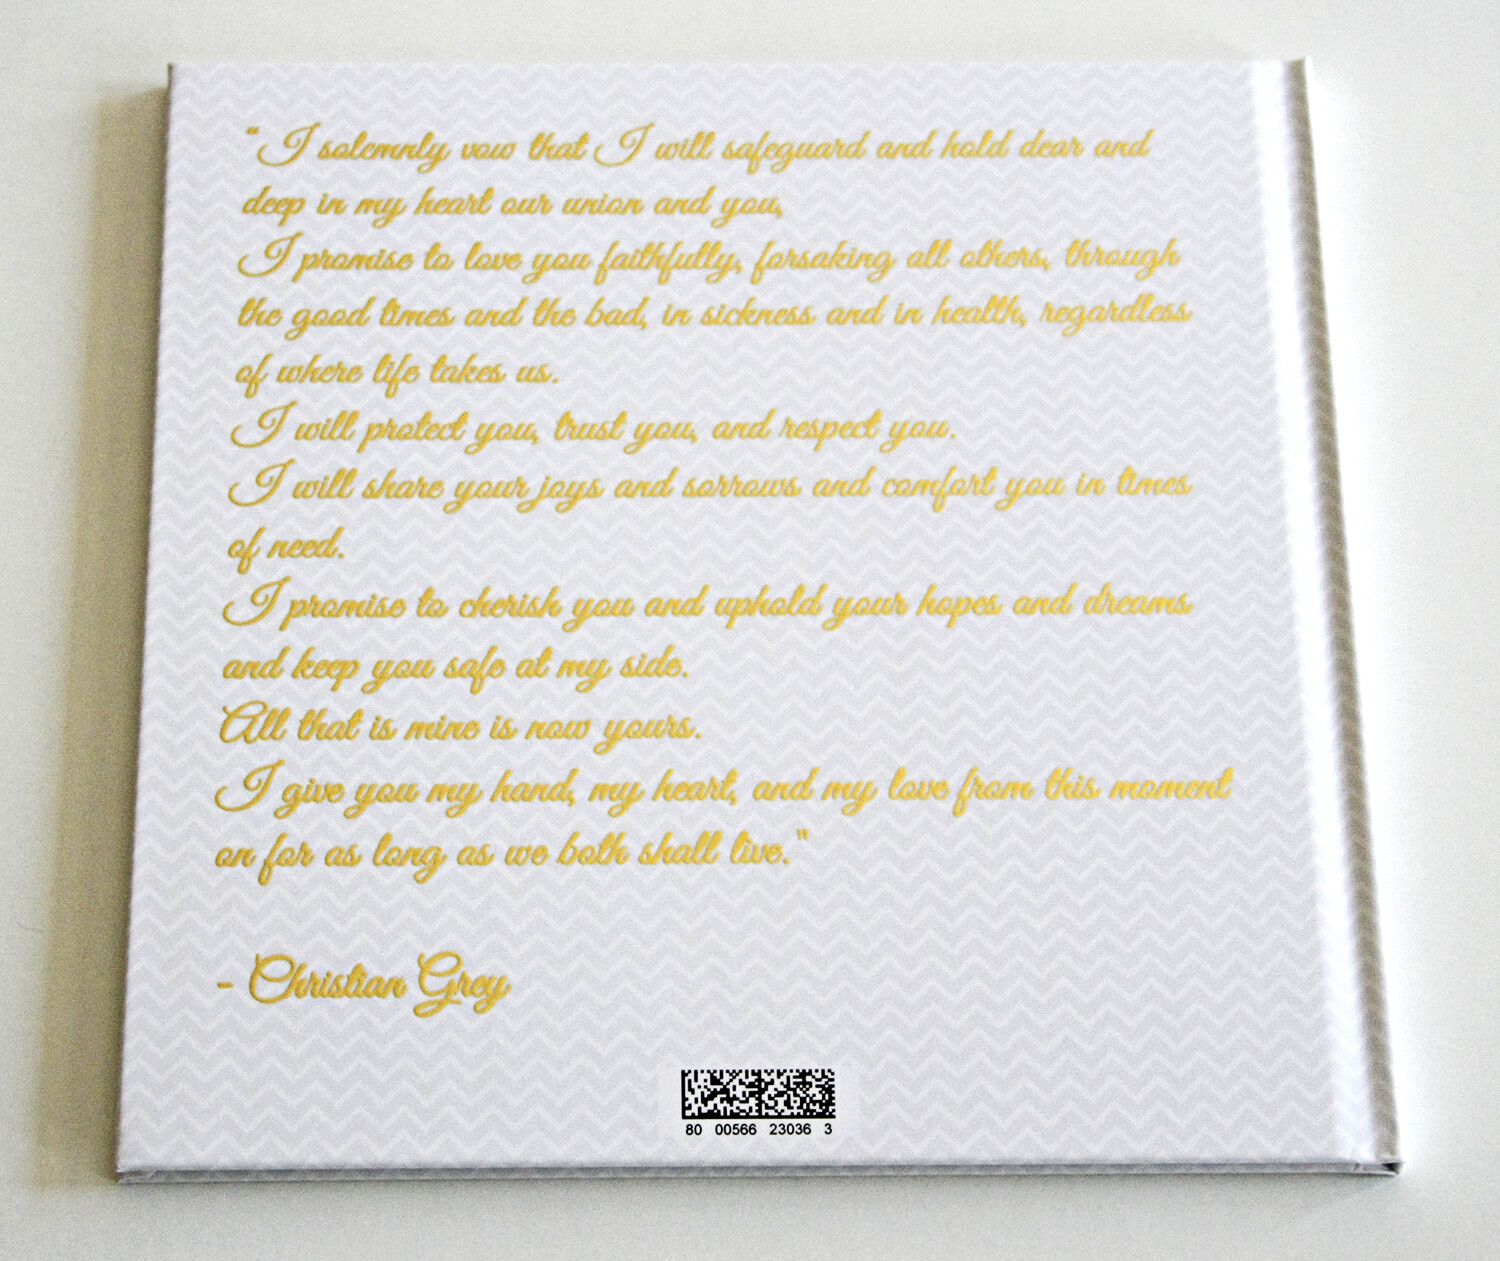 "I solemnly vow that I will safeguard and hold dear and
deep in my heart our union and you,
I promise to love you faithfully, forsaking all others, through
the good times and the bad, in sickness and in health, regardless
of where life takes us.
I will protect you, trust you, and respect you.
I will share your joys and sorrows and comfort you in times
of need.
I promise to cherish you and uphold your hopes and dreams
and keep you safe at my side.
All that is mine is now yours.
I give you my hand, my heart, and my love from this moment
on for as long as we both shall live."
- Christian Grey
80 00566 23036 3